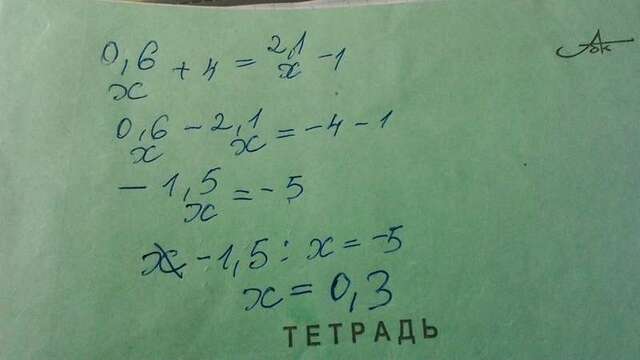 0,6/x + 4 = 2,1/x - 1
0,6/x - 2,1/x = -4 - 1
- 1,5/x = -5
-1,5 : x = -5
x = 0,3
ТЕТРАДЬ